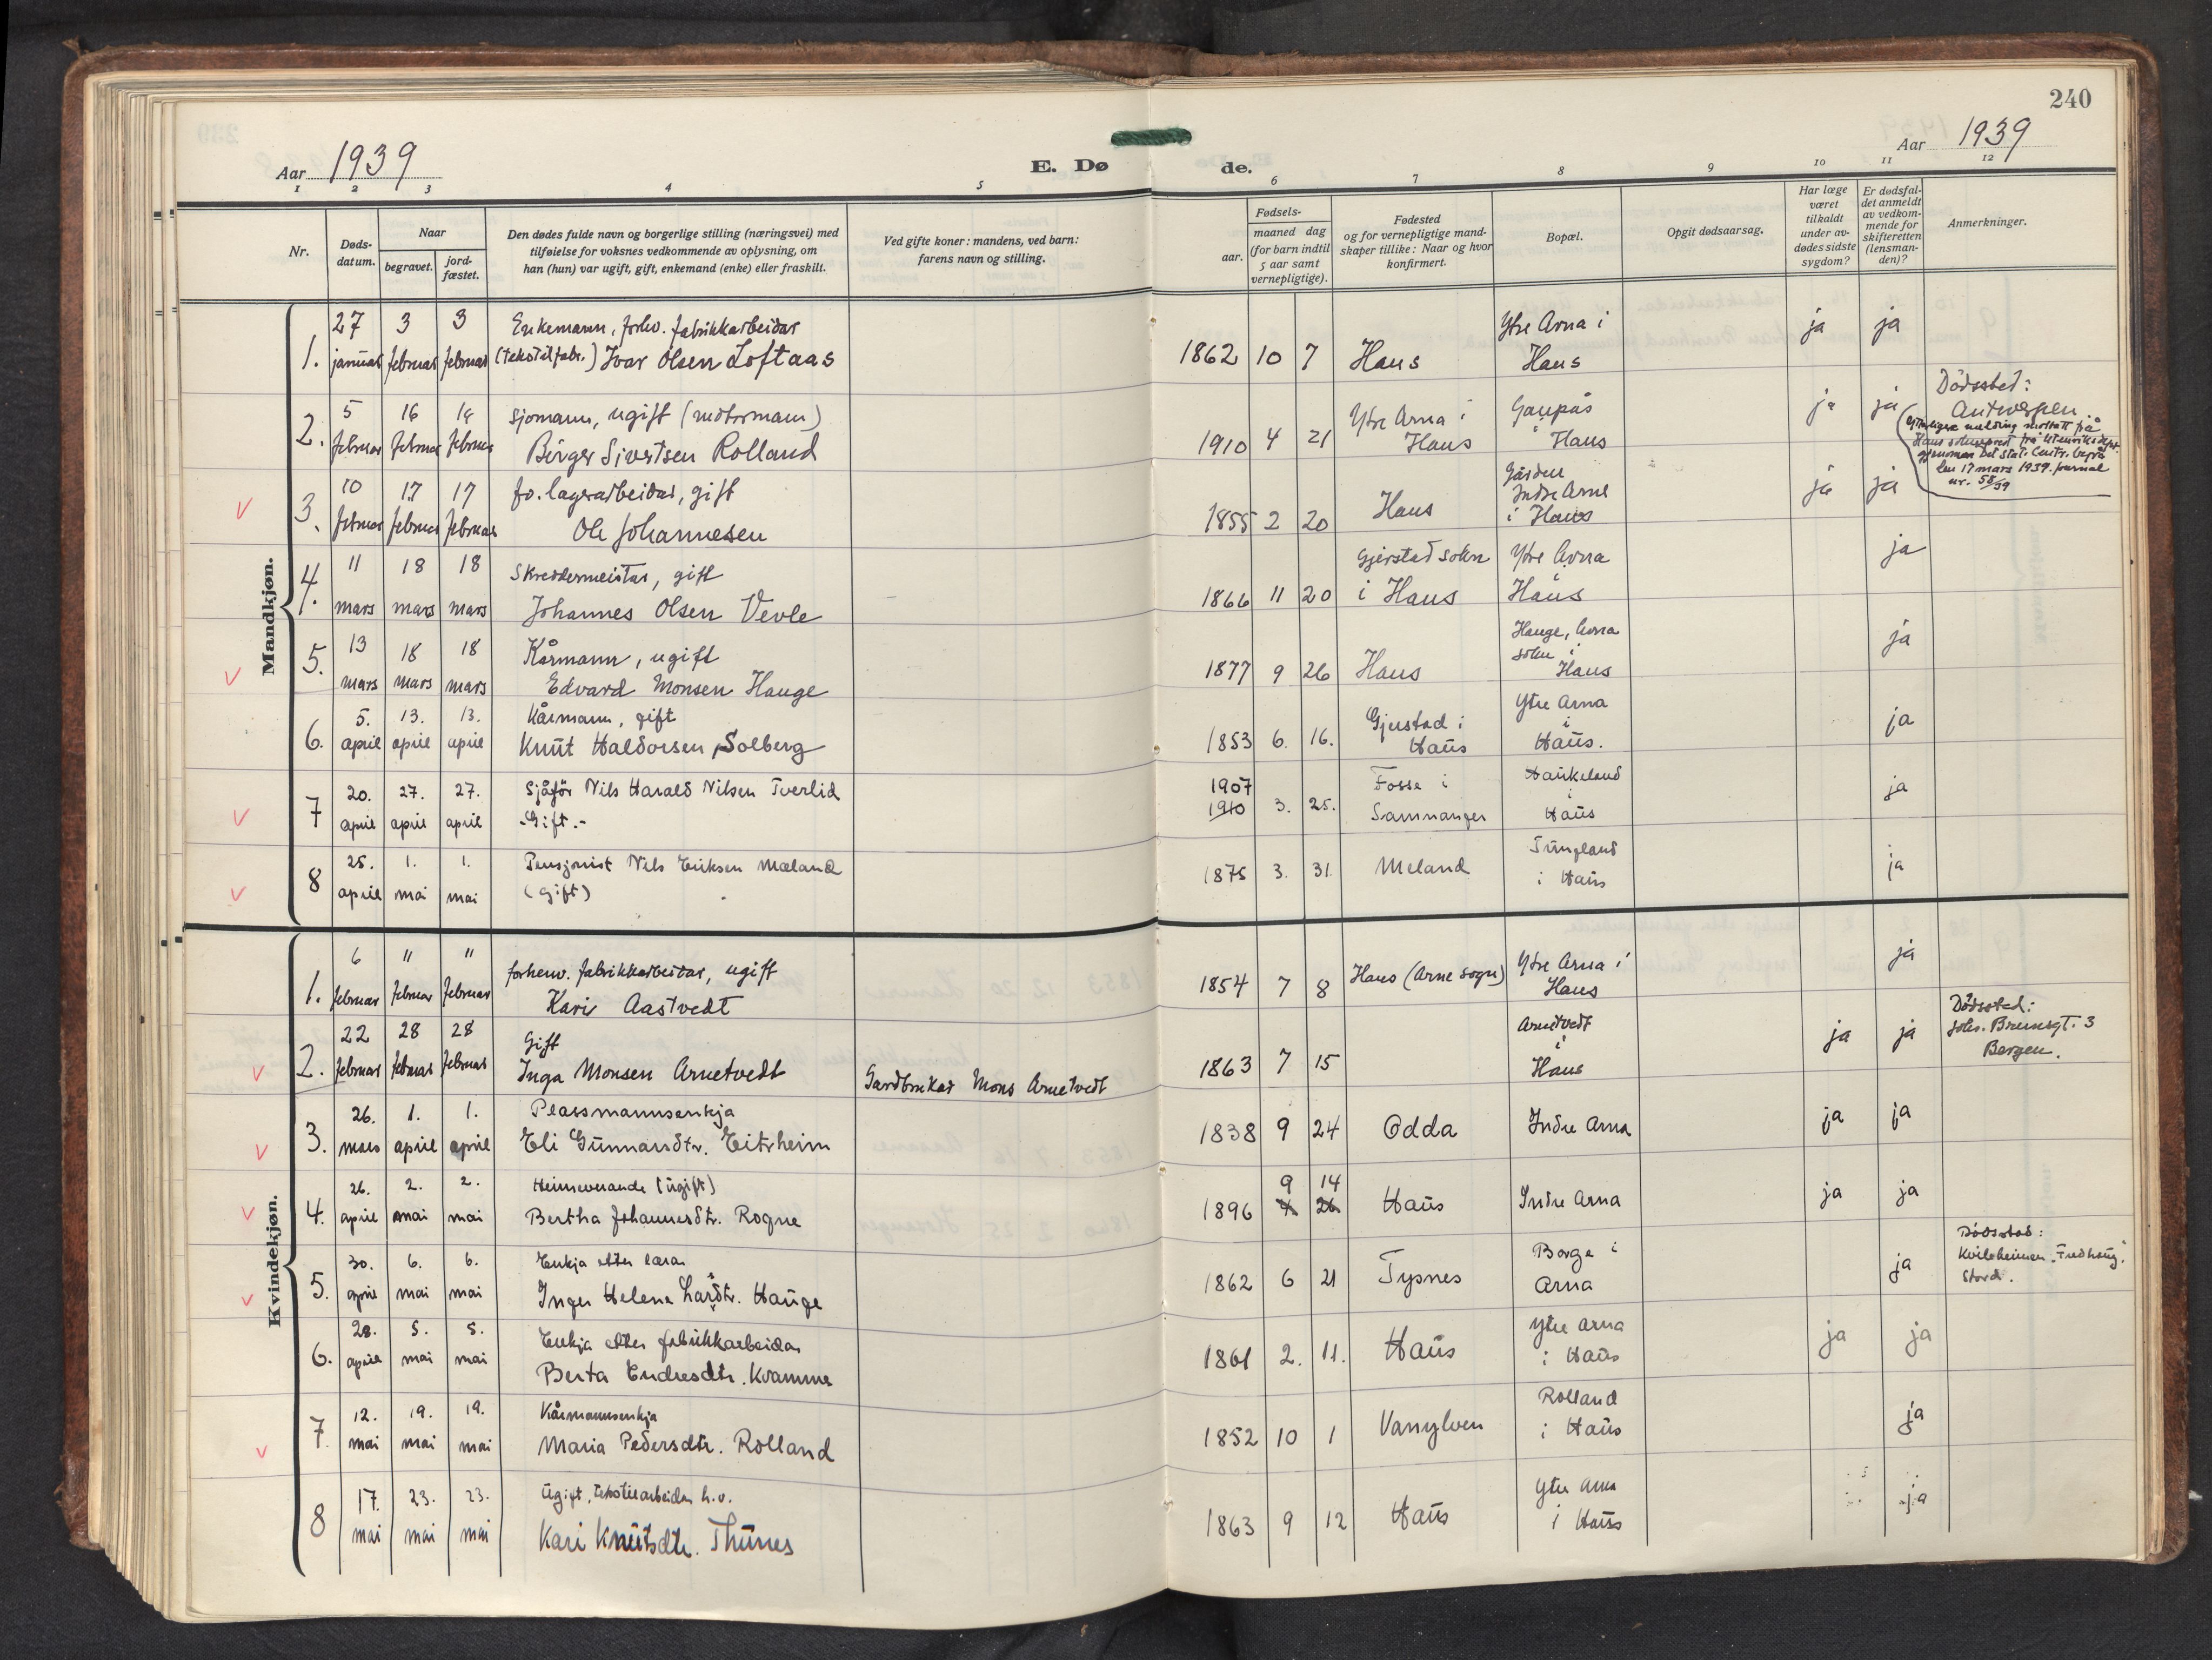 240
Aar 1939
E. Dø
de.
Aar 1939
1 2 3 4 5 6 7 8 9 10 11 12
Nr.
Døds-
datum.
Naar
begravet.
jord-
fæstet.
Den dødes fulde navn og borgerlige stilling (næringsvei) med
tilføielse for voksnes vedkommende av oplysning, om
han (hun) var ugift, gift, enkemand (enke) eller fraskilt.
Ved gifte koner: mandens, ved barn:
farens navn og stilling.
Fødsels-
aar.
maaned dag
(for barn indtil
5 aar samt
vernepligtige).
Fødested
og for vernepligtige mand-
skaper tillike: Naar og hvor
konfirmert.
Bopæl.
Opgit dødsaarsag.
Har læge
været
tilkaldt
under av-
dødes sidste
sygdom?
Er dødsfal-
det anmeldt
av vedkom-
mende for
skifteretten
(lensman-
den)?
Anmerkninger.
Mandkjøn.
27 3 3 Enkemann, forhv. fabrikkarbeidar Ytre Arna i ja ja
1. januar februar februar (tekstilfabr.) Ivar Olsen Loftaas 1862 10 7 Haus Haus
5 16 16 Sjømann, ugift (motormann) Ytre Arna i Gaupås ja ja Dödsstad:
2. februar februar februar Birger Sivertsen Rolland 1910 4 21 Haus i Haus Antwerpen.
(Ytterligere melding mottatt på
Haus sokneprest frå Utenriksdept.
gjenomen Det stat. Centr. byrå
den 17 mars 1939. journal
nr. 58/39
10 17 17 fv. lagerarbeidar, gift Gården Indre Arne ja ja
3. februar februar februar Ole Johannesen 1855 2 20 Haus i Haus
11 18 18 Skreddermeistar, gift Gjerstad sokn Ytre Arna ja
4. mars mars mars Johannes Olsen Vevle 1866 11 20 i Haus i Haus
13 18 18 Kårmann, ugift Hauge, Arna ja
5. mars mars mars Edvard Monsen Hauge 1877 9 26 Haus sokn i Haus
5. 13. 13. Kårmann, gift Gjerstad i Ytre Arna ja
6. april april april Knut Haldorsen Solberg 1853 6. 16. Haus i Haus.
20. 27. 27. Sjåfør Nils Harald Nilsen Tverlid 1907 Fosse i Haukeland ja
7 april april april -Gift.- 1910 3. 25. Samnanger i Haus
25. 1. 1. Pensjonist Nils Eriksen Mæland Tungland ja
8 april mai mai (gift) 1875 3. 31. Meland i Haus
Kvindekjøn.
6 " " forhenv. fabrikkarbeidar, ugift Ytre Arna i ja
1. februar februar februar Kari Aastvedt 1854 7 8 Haus (Arne sogn) Haus
22 28 28 Gift Arnetvedt ja ja Dödsstad:
2. februar februar februar Inga Monsen Arnetvedt Gardbrukar Mons Arnetvedt 1863 7 15 i Haus Joh. Brunsgt. 3
Bergen.
26. 1. 1. Plassmannsenkja
3. mars april april Eli Gunnarsdtr. Eitrheim 1838 9 24 Odda Indre Arna ja ja
26. 2. 2. Heimeverande (ugift) 9 14
4. april mai mai Bertha Johannesdtr. Rogne 1896 4 26 Haus Indre Arna ja ja
30. 6. 6. Enkja etter lærar Borge i ja Dödsstad:
5. april mai mai Inger Helene Larsdtr. Hauge 1862 6 21 Tysnes Arna Kvileheimen "Fredhaug",
Stord.
28. 5. 5. Enkja etter fabrikkarbeidar Ytre Arna ja ja
6. april mai mai Berta Endresdtr. Kvamme 1861 2. 11. Haus i Haus
12. 19. 19. Kårmannsenkja Rolland ja
7. mai mai mai Maria Pedersdtr. Rolland 1852 10 1 Vanylven i Haus
17. 23. 23. Ugift, tekstilarbeidar h.v. Ytre Arna ja
8 mai mai mai Kari Knutsdtr. Thunes 1863 9 12 Haus i Haus